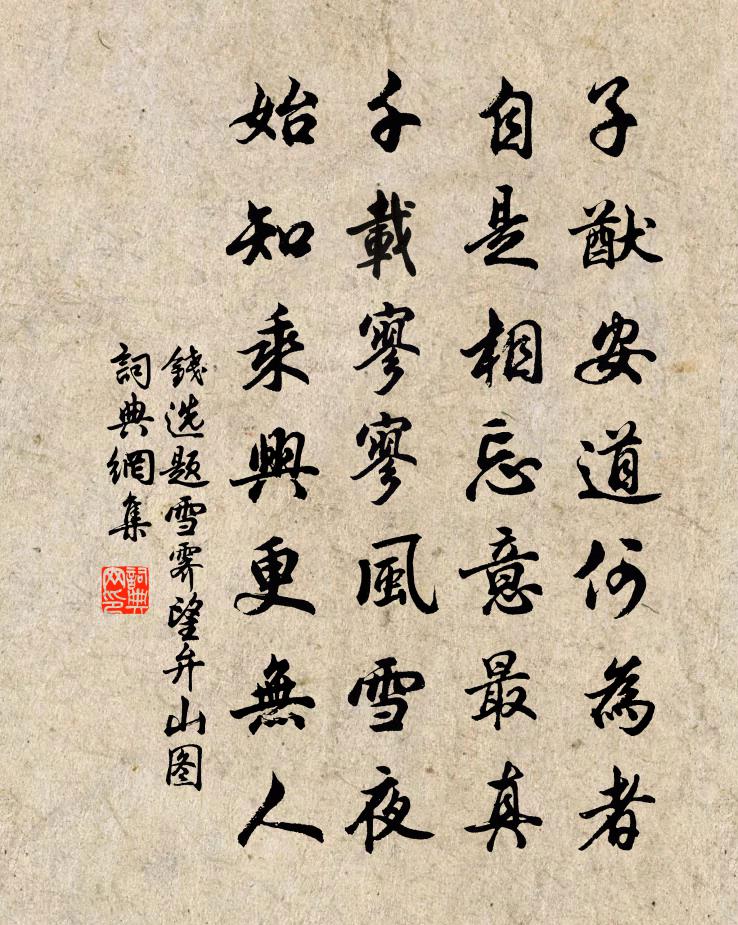 子猷安道何為者
自是相忘意最真
千載寥寥風雪夜
始知乘興更無人
錢选题雪霽望弁山图
詞典網集
詞典网印